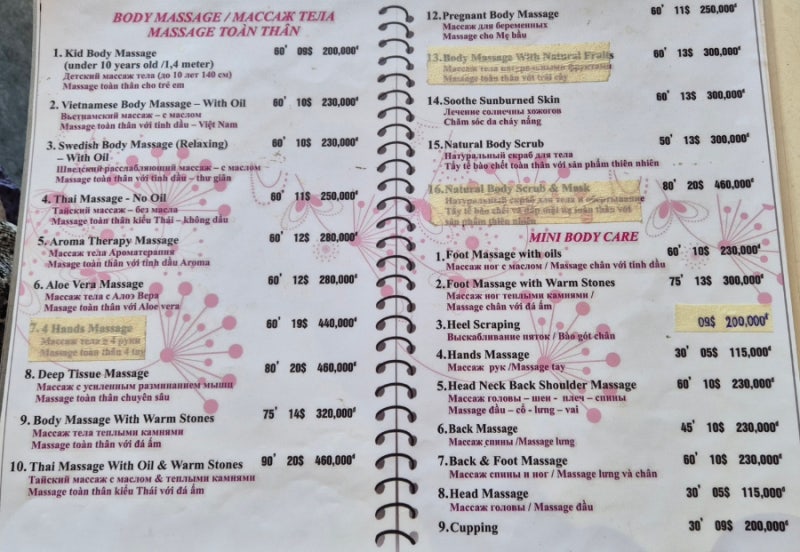 BODY MASSAGE / МАССАЖ ТЕЛА
MASSAGE TOÀN THÂN
1. Kid Body Massage 60' 09$ 200,000đ
(under 10 years old /1,4 meter)
Детский массаж тела (до 10 лет 140 см)
Massage toàn thân cho trẻ em
2. Vietnamese Body Massage – With Oil 60' 10$ 230,000đ
Вьетнамский массаж – с маслом
Massage toàn thân với tinh dầu – Việt Nam
3. Swedish Body Massage (Relaxing) 60' 10$ 230,000đ
– With Oil
Шведский расслабляющий массаж – с маслом
Massage toàn thân với tinh dầu – thư giãn
4. Thai Massage - No Oil 60' 11$ 250,000đ
Тайский массаж – без масла
Massage toàn thân kiểu Thái - không dầu
5. Aroma Therapy Massage 60' 12$ 280,000đ
Массаж тела Ароматерапия
Masage toàn thân với tinh dầu Aroma
6. Aloe Vera Massage 60' 12$ 280,000đ
Массаж тела с Алоэ Вера
Massage toàn thân với Aloe vera
7. 4 Hands Massage 60' 19$ 440,000đ
Массаж тела в 4 руки
Massage toàn thân 4 tay
8. Deep Tissue Massage 80' 20$ 460,000đ
Массаж с усиленным разминанием мышц
Massage toàn thân chuyên sâu
9. Body Massage With Warm Stones 75' 14$ 320,000đ
Массаж тела теплыми камнями
Massage toàn thân với đá ấm
10. Thai Massage With Oil & Warm Stones 90' 20$ 460,000đ
Тайский массаж с маслом & теплыми камнями
Massage toàn thân kiểu Thái với đá ấm
12. Pregnant Body Massage 60' 11$ 250,000đ
Массаж для беременных
Massage cho Mẹ bầu
13. Body Massage With Natural Fruits 60' 13$ 300,000đ
Массаж тела натуральными фруктами
Massage toàn thân với trái cây
14. Soothe Sunburned Skin 60' 13$ 300,000đ
Лечение солнечны хожогов
Chăm sóc da cháy nắng
15. Natural Body Scrub 50' 13$ 300,000đ
Натуральный скраб для тела
Tẩy tế bào chết toàn thân với sản phẩm thiên nhiên
16. Natural Body Scrub & Mask 80' 20$ 460,000đ
Натуральный скраб для тела и обертывание
Tẩy tế bào chết và đắp mặt nạ toàn thân với
sản phẩm thiên nhiên
MINI BODY CARE
1. Foot Massage with oils 60' 10$ 230,000đ
Массаж ног с маслом / Massage chân với tinh dầu
2. Foot Massage with Warm Stones 75' 13$ 300,000đ
Массаж ног теплыми камнями /
Massage chân với đá ấm
3. Heel Scraping 09$ 200,000đ
Выскабливание пяток / Bào gót chân
4. Hands Massage 30' 05$ 115,000đ
Массаж рук /Massage tay
5. Head Neck Back Shoulder Massage 60' 10$ 230,000đ
Массаж головы – шеи - плеч – спины
Massage đầu – cổ - lưng – vai
6. Back Massage 45' 10$ 230,000đ
Массаж спины /Massage lưng
7. Back & Foot Massage 60' 10$ 230,000đ
Массаж спины и ног / Massage lưng và chân
8. Head Massage 30' 05$ 115,000đ
Массаж головы / Massage đầu
9. Cupping 30' 09$ 200,000đ